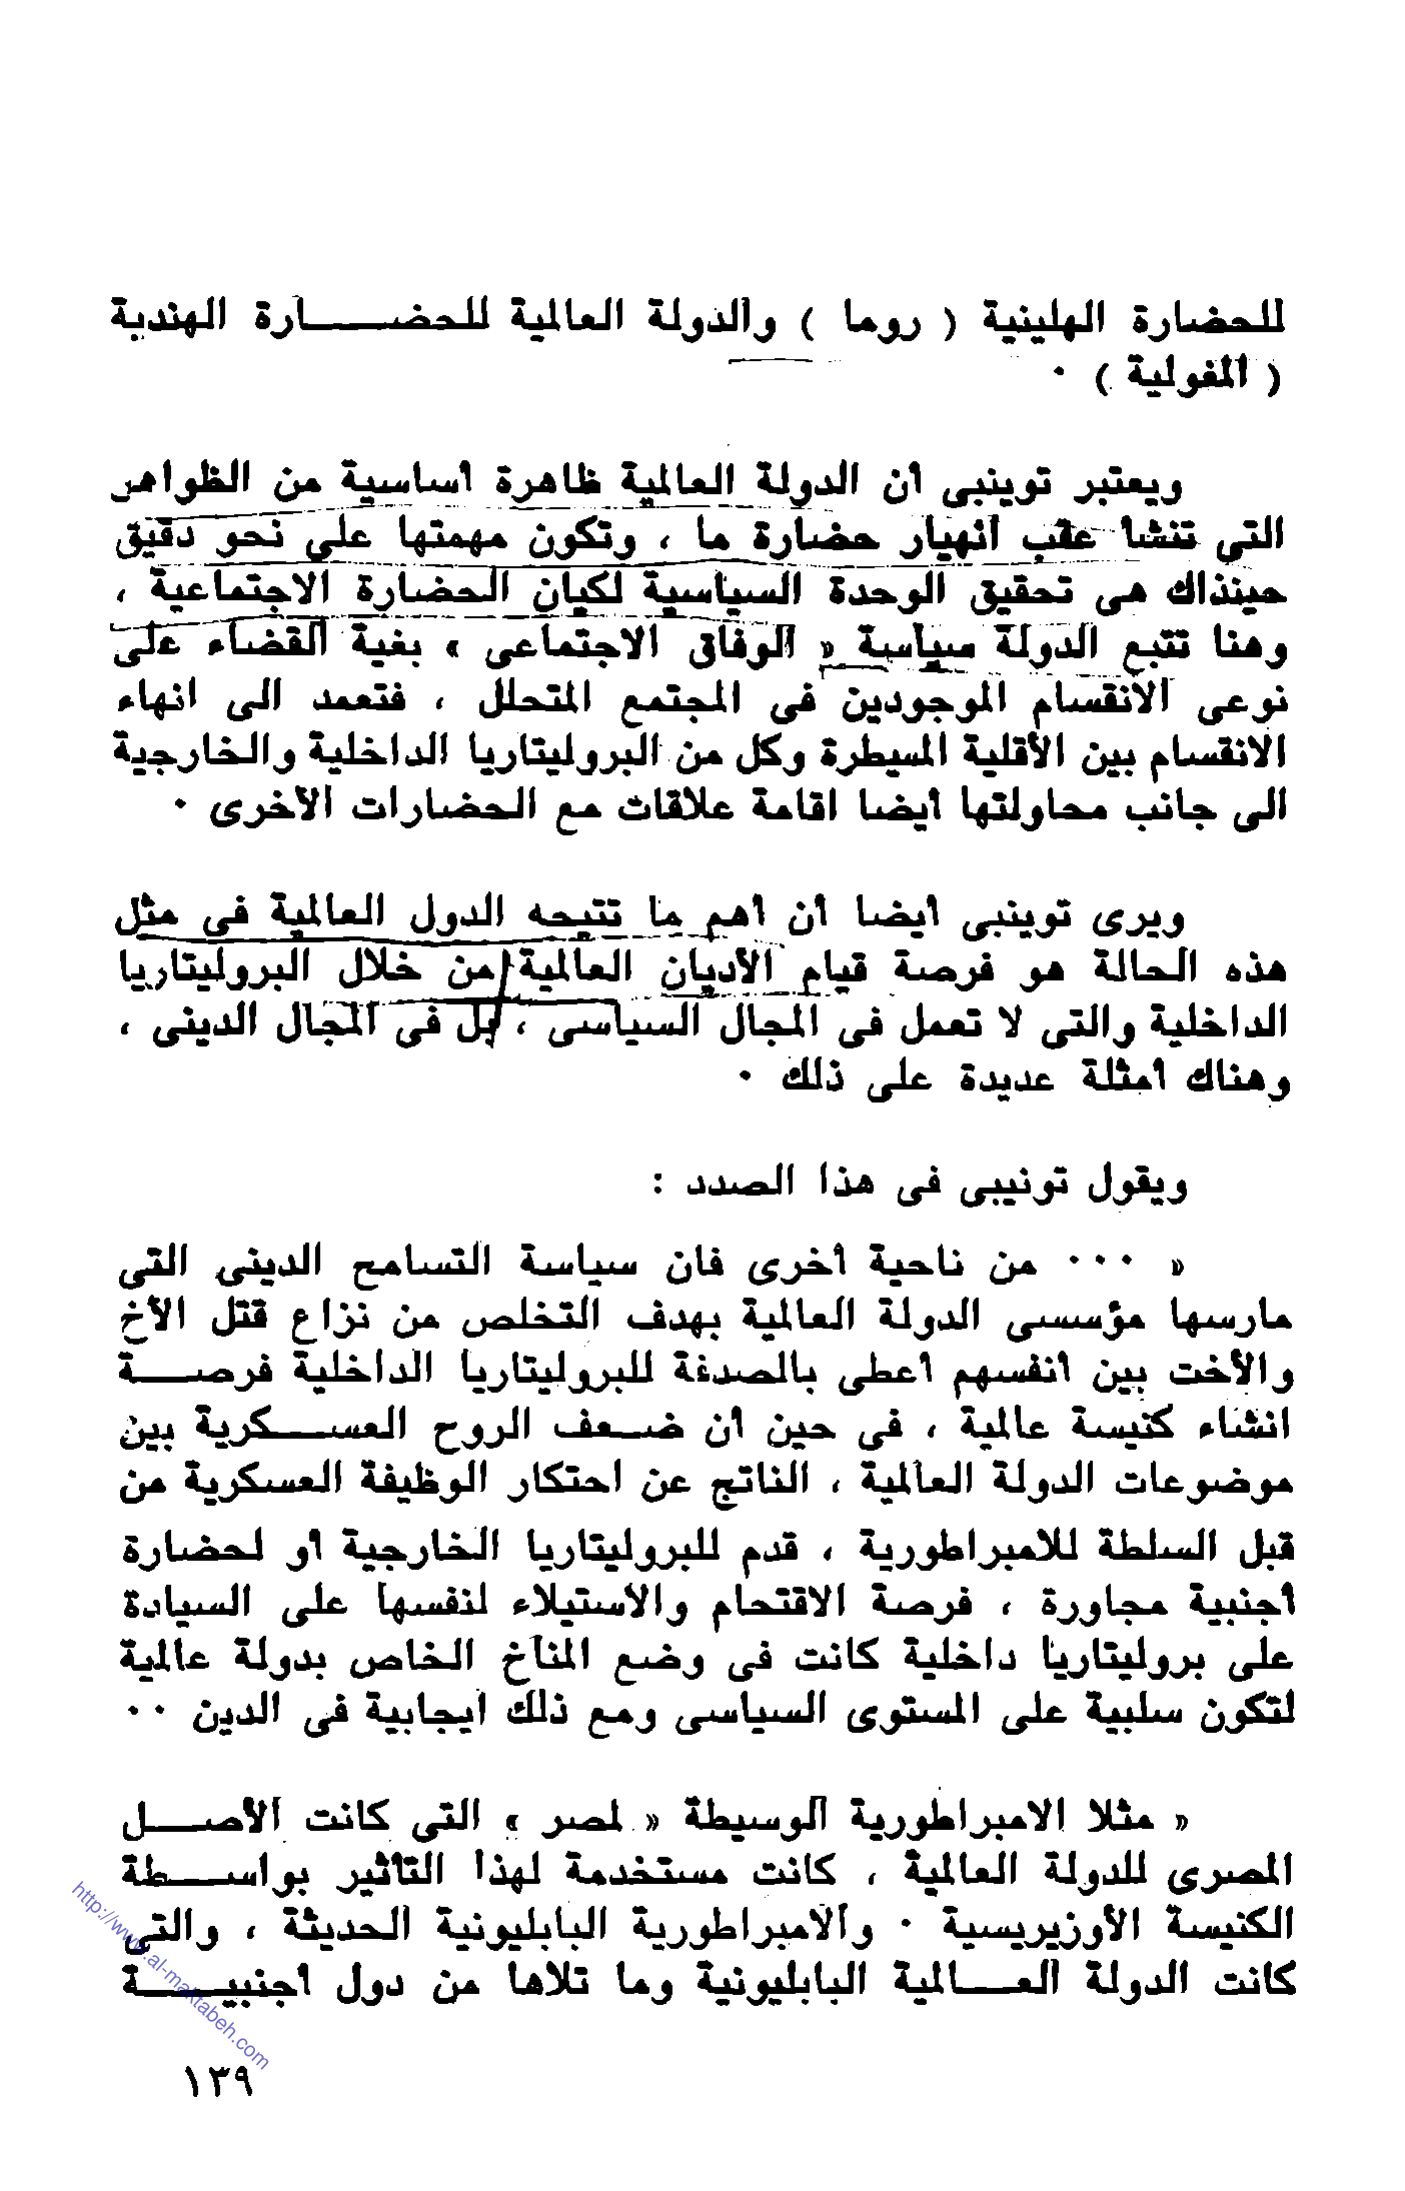 للحضارة الهلينية ( روما ) والدولة العالمية للحضارة الهندية
( المغولية ) ٠
ويعتبر توينبى أن الدولة العالمية ظاهرة أساسية من الظواهر
التى تنشأ عقب انهيار حضارة ما ، وتكون مهمتها على نحو دقيق
حينذاك هى تحقيق الوحدة السياسية لكيان الحضارة الاجتماعية ،
وهنا تتبع الدولة سياسة « الوفاق الاجتماعى » بغية القضاء على
نوعى الانقسام الموجودين فى المجتمع المتحلل ، فتعمد الى انهاء
الانقسام بين الأقلية المسيطرة وكل من البروليتاريا الداخلية والخارجية
الى جانب محاولتها أيضا اقامة علاقات مع الحضارات الأخرى ٠
ويرى توينبى أيضا أن أهم ما تتيحه الدول العالمية فى مثل
هذه الحالة هو فرصة قيام الأديان العالمية من خلال البروليتاريا
الداخلية والتى لا تعمل فى المجال السياسى ، بل فى المجال الدينى ،
وهناك أمثلة عديدة على ذلك ٠
ويقول تونيبى فى هذا الصدد :
« ٠٠٠ من ناحية أخرى فان سياسة التسامح الدينى التى
مارسها مؤسسى الدولة العالمية بهدف التخلص من نزاع قتل الأخ
والأخت بين أنفسهم أعطى بالصدفة للبروليتاريا الداخلية فرصة
انشاء كنيسة عالمية ، فى حين أن ضعف الروح العسكرية بين
موضوعات الدولة العالمية ، الناتج عن احتكار الوظيفة العسكرية من
قبل السلطة للامبراطورية ، قدم للبروليتاريا الخارجية أو لحضارة
أجنبية مجاورة ، فرصة الاقتحام والاستيلاء لنفسها على السيادة
على بروليتاريا داخلية كانت فى وضع المناخ الخاص بدولة عالمية
لتكون سلبية على المستوى السياسى ومع ذلك ايجابية فى الدين ٠٠
« مثلا الامبراطورية الوسيطة « لمصر » التى كانت الأصل
المصرى للدولة العالمية ، كانت مستخدمة لهذا التأثير بواسطة
الكنيسة الأوزيريسية ٠ والامبراطورية البابليونية الحديثة ، والتى
كانت الدولة العالمية البابليونية وما تلاها من دول أجنبية
١٣٩
http://www.al-maktabeh.com